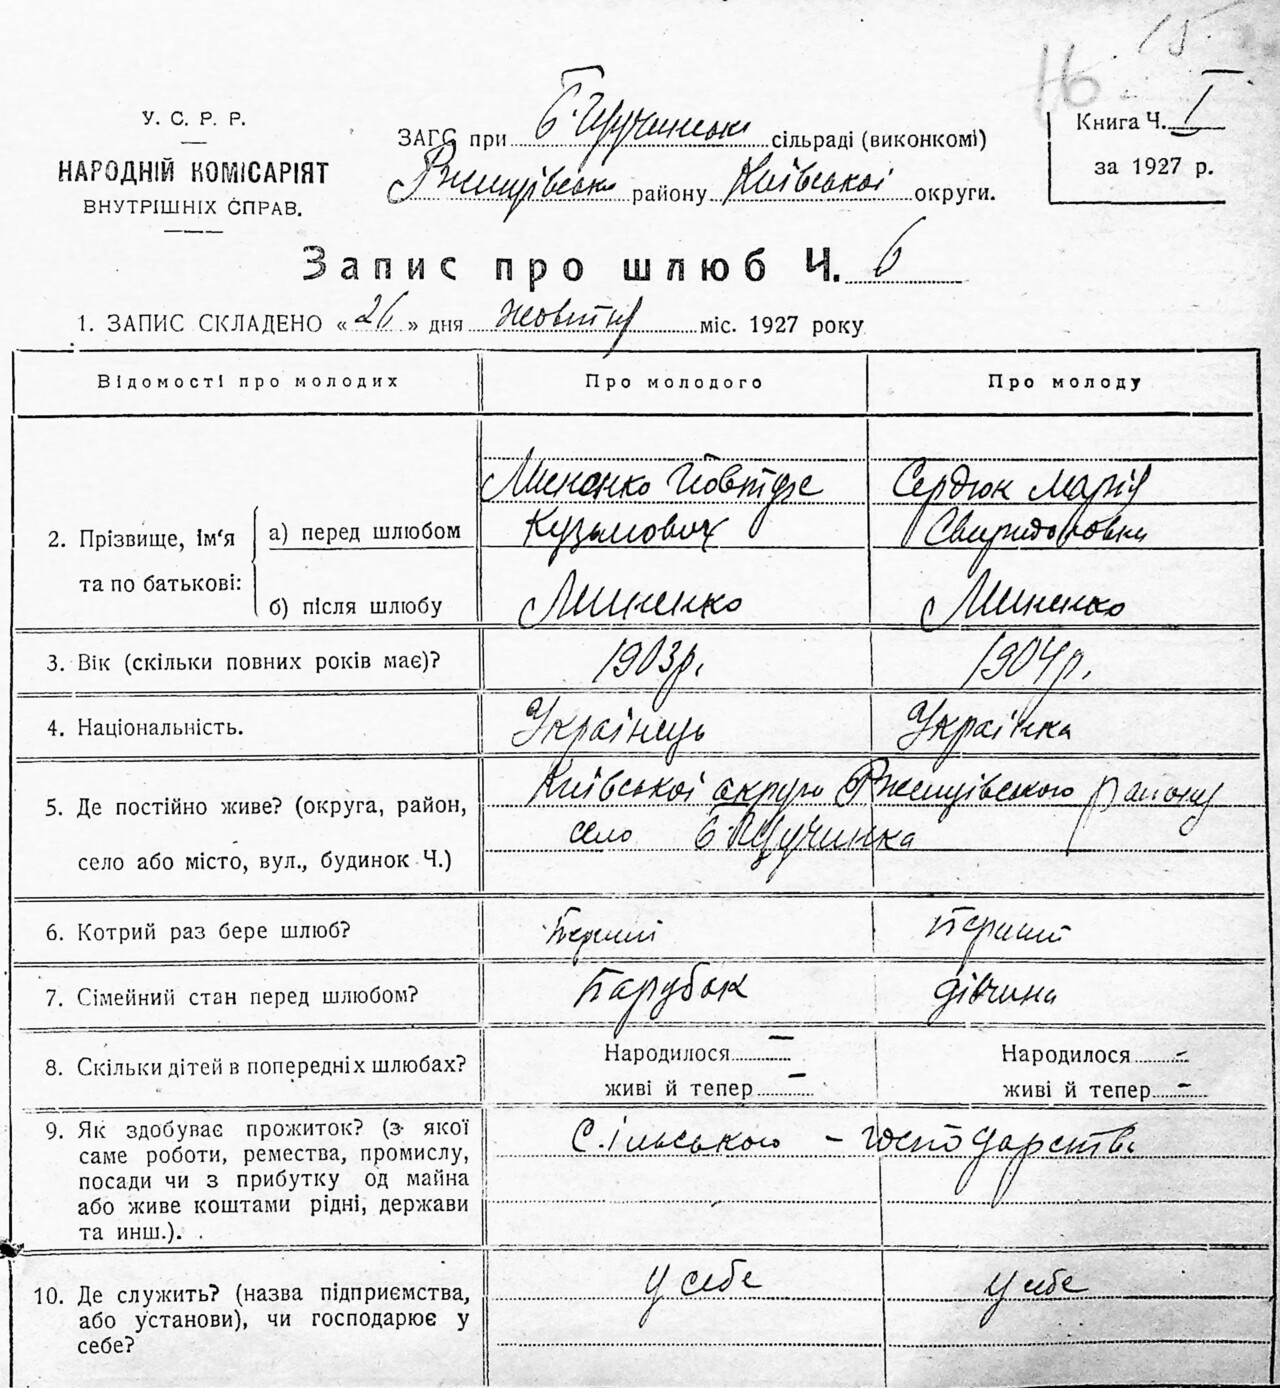 15
16.
У. С. Р. Р.
НАРОДНІЙ КОМІСАРІЯТ
ВНУТРІШНІХ СПРАВ.
ЗАГС при Б Щучинськ сільраді (виконкомі)
Ржищівськ району Київської округи.
Книга Ч. I
за 1927 р.
Запис про шлюб Ч. 6
1. ЗАПИС СКЛАДЕНО « 26 » дня жовтня міс. 1927 року
Відомості про молодих
Про молодого
Про молоду
2. Прізвище, ім'я та по батькові:
а) перед шлюбом
Миненко
Кузьмович
Сердюк Марія
Свиридоновна
б) після шлюбу
Миненко
Миненко
3. Вік (скільки повних років має)?
1903р.
1904р.
4. Національність.
Українець
Українка
5. Де постійно живе? (округа, район,
село або місто, вул., будинок Ч.)
Київської округи Ржищівського району
село Б Щучинка
6. Котрий раз бере шлюб?
Перший
Перший
7. Сімейний стан перед шлюбом?
Парубок
дівчина
8. Скільки дітей в попередніх шлюбах?
Народилося –
живі й тепер –
Народилося –
живі й тепер –
9. Як здобуває прожиток? (з якої
саме роботи, ремества, промислу,
посади чи з прибутку од майна
або живе коштами рідні, держави
та инш.). .
Сільського – господарства
10. Де служить? (назва підприємства,
або установи), чи господарює у
себе?
у себе
у себе